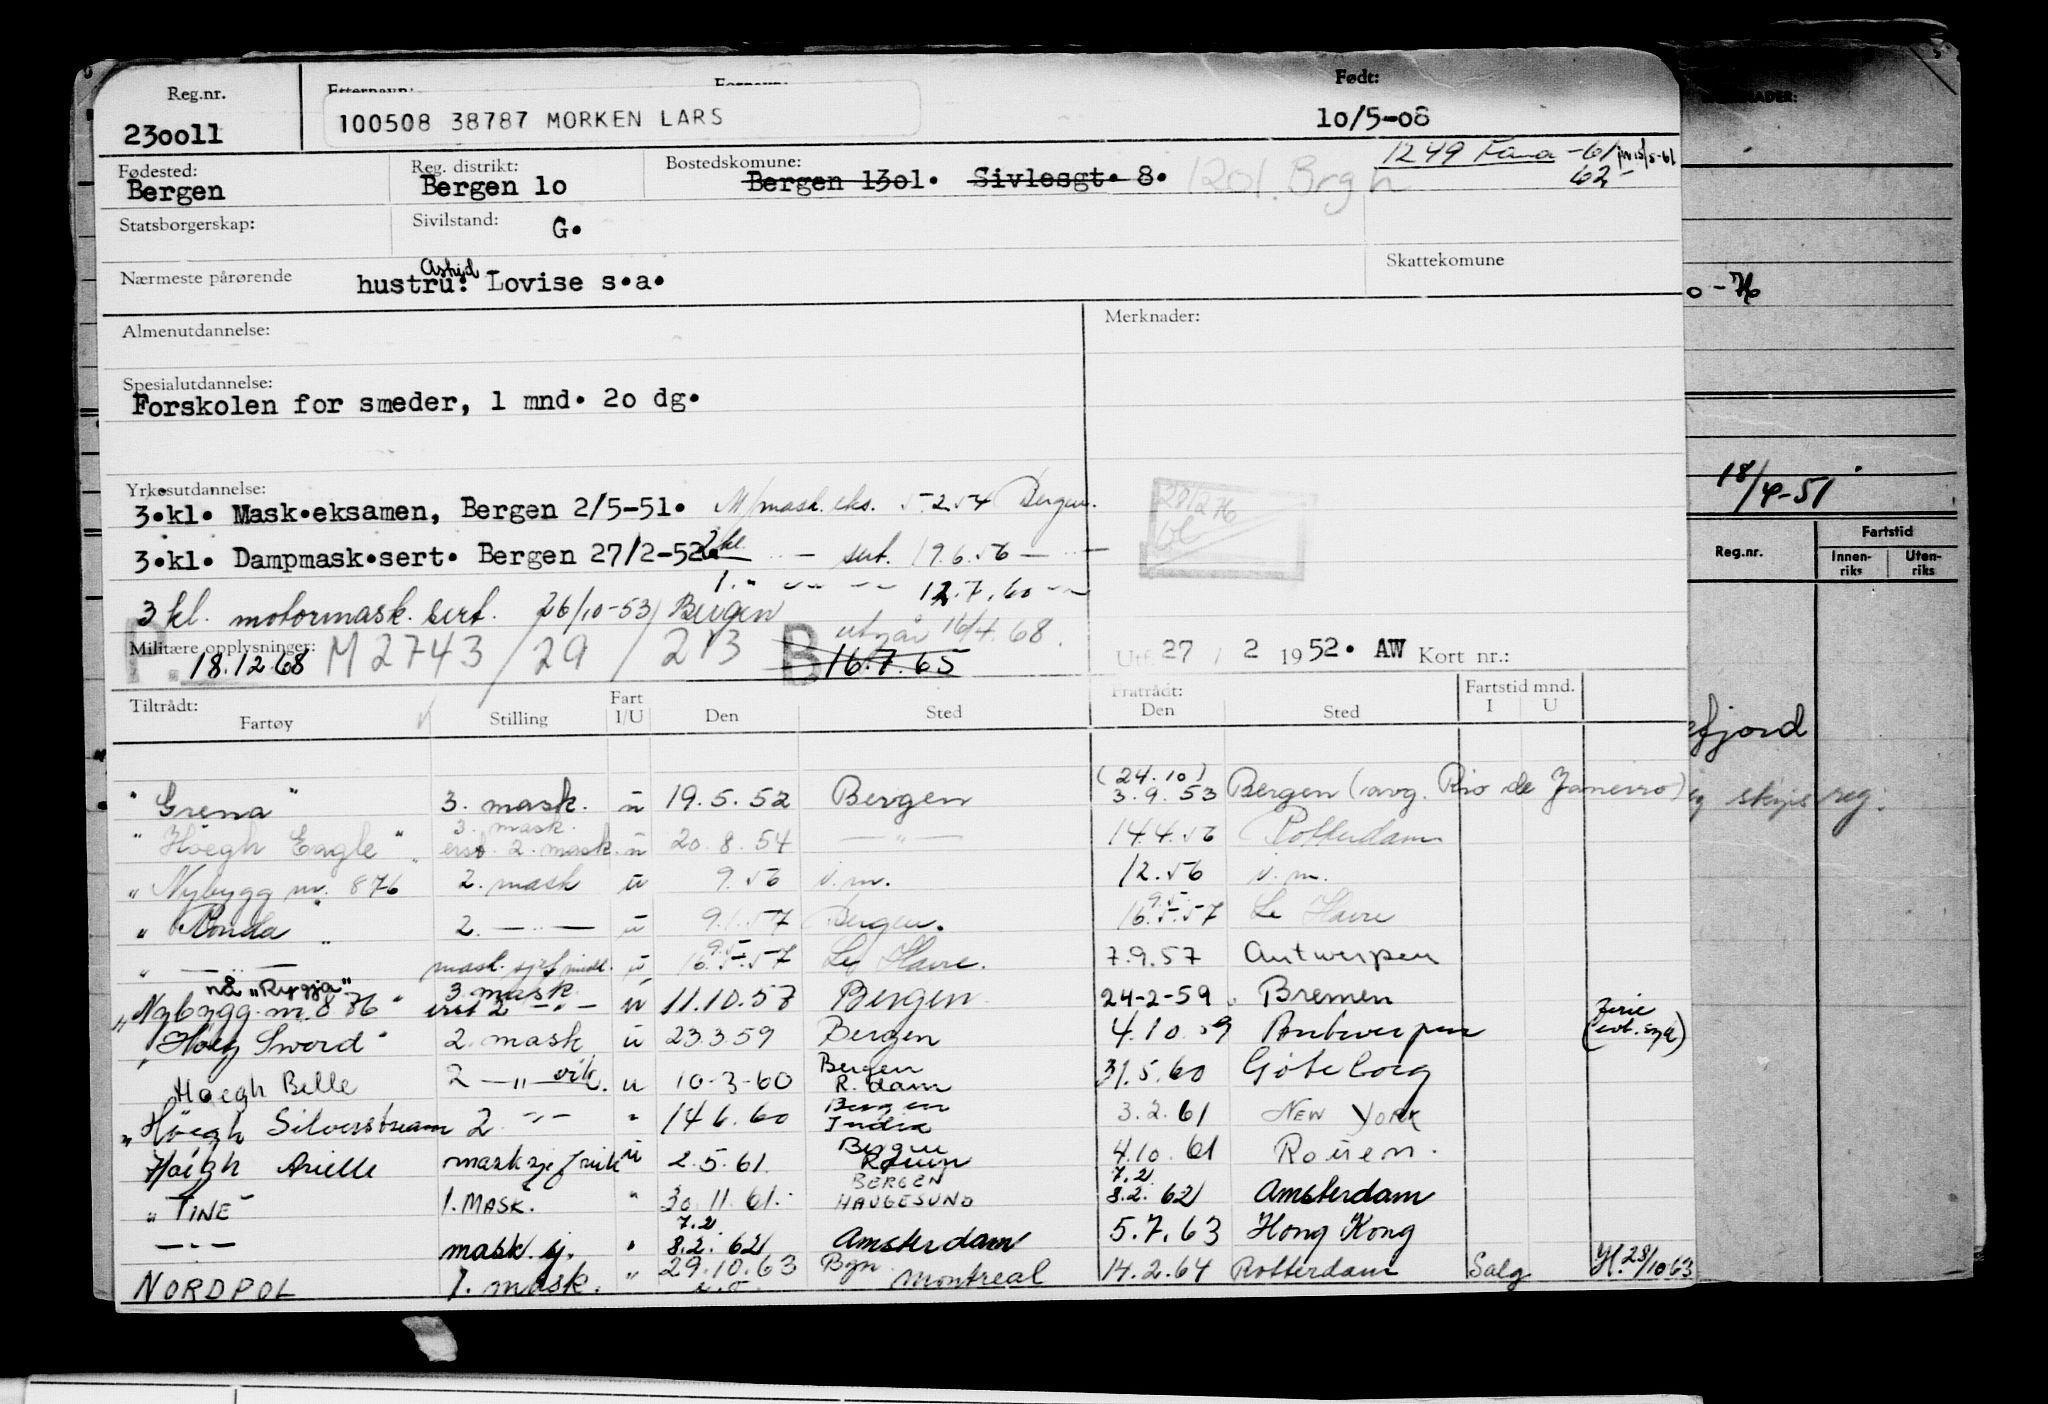 Reg.nr. Etternavn: Fornavn: Født:
230011 100508 38787 MORKEN LARS 10/5-08
Fødested: Reg. distrikt: Bostedskomune: 1249 Fana -61
Bergen Bergen 10 Bergen 1301. Sivlesgt. 8. 1201. Brgn 62
Statsborgerskap: Sivilstand: G.
Nærmeste pårørende hustru: Astrid Lovise s.a. Skattekomune
Almenutdannelse: Merknader:
Spesialutdannelse:
Forskolen for smeder, 1 mnd. 20 dg.
Yrkesutdannelse:
3.kl. Mask.eksamen, Bergen 2/5-51. M/mask. eks. 5.2.54 Bergen.
3.kl. Dampmask.sert. Bergen 27/2-52. 2kl. — " — sert. 19.6.56 — " —
1. " — " — 12.7.60 — " —
3 kl. motormask. sert. 26/10-53, Bergen
utgår 16/4.68.
Militære opplysninger:
P. 18.12.68 M 2743/29/213 B 16.7.65
Utf. 27 / 2 1952. AW Kort nr.:
Tiltrådt: Fratrådt: Fartstid mnd.
Fartøy Stilling Fart I/U Den Sted Den Sted I U
"Grena" 3. mask. u 19.5.52 Bergen (24.10) 3.9.53 Bergen (avg. Rio de Janeiro)
"Høegh Eagle" 3. mask. erst. 2. mask. u 20.8.54 — " — 14.4.56 Rotterdam
"Nybygg nr. 876" 2. mask u 9.56 i.m. 12.56 i.m.
"Ronda" 2. — " — u 9.1.57 Bergen. 9.5. 16.5.57 Le Havre
" — " — mask. sjef midl. u 9.5 16.5.57 Le Havre. 7.9.57 Antwerpen
nå "Rygja"
"Nybygg nr. 876" 3. mask erst 2 — " — u 11.10.57 Bergen 24-2-59 Bremen
"Høeg Sword" 2. mask u 23.3.59 Bergen 4.10.59 Antwerpen
Høegh Belle 2 — " — vik. u 10-3-60 Bergen R.dam 31.5.60 Göteborg
"Høegh Silverstream 2 — " — " 14.6.60 Bergen India 3.2.61 NEW YORK
Høegh Arielle mask sjef vik u 2.5.61. Bergen Rouen 4.10.61 Rouen.
"TINE" 1. MASK. " 30.11.61. BERGEN HAUGESUND 7.2 8.2.62 Amsterdam
— " — mask. sj. " 7.2 8.2.62 Amsterdam 5.7.63 Hong Kong
NORDPOL 1. mask. " 29.10.63 Bgn. Montreal 14.2.64 Rotterdam Salg 28/10 63
18/4-51
Reg.nr. Fartstid
Innenriks Utenriks
fjord
skips reg.